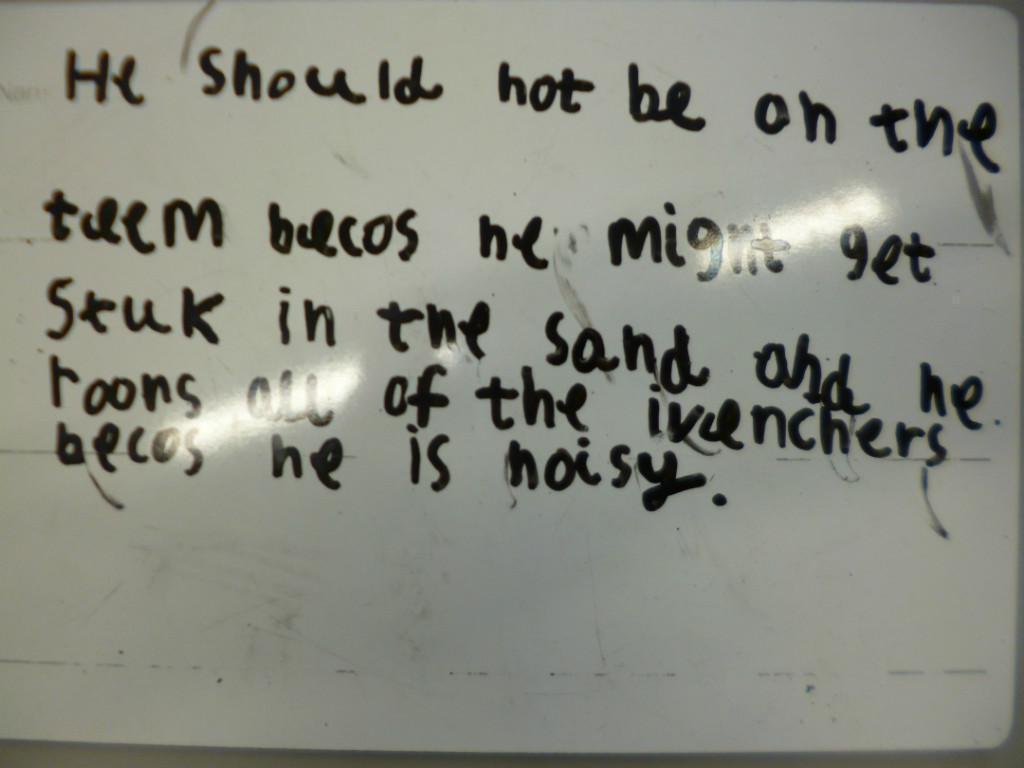 He should not be on the
teem becos he might get
Stuk in the sand and he
roons all of the ivenchers
becos he is noisy.